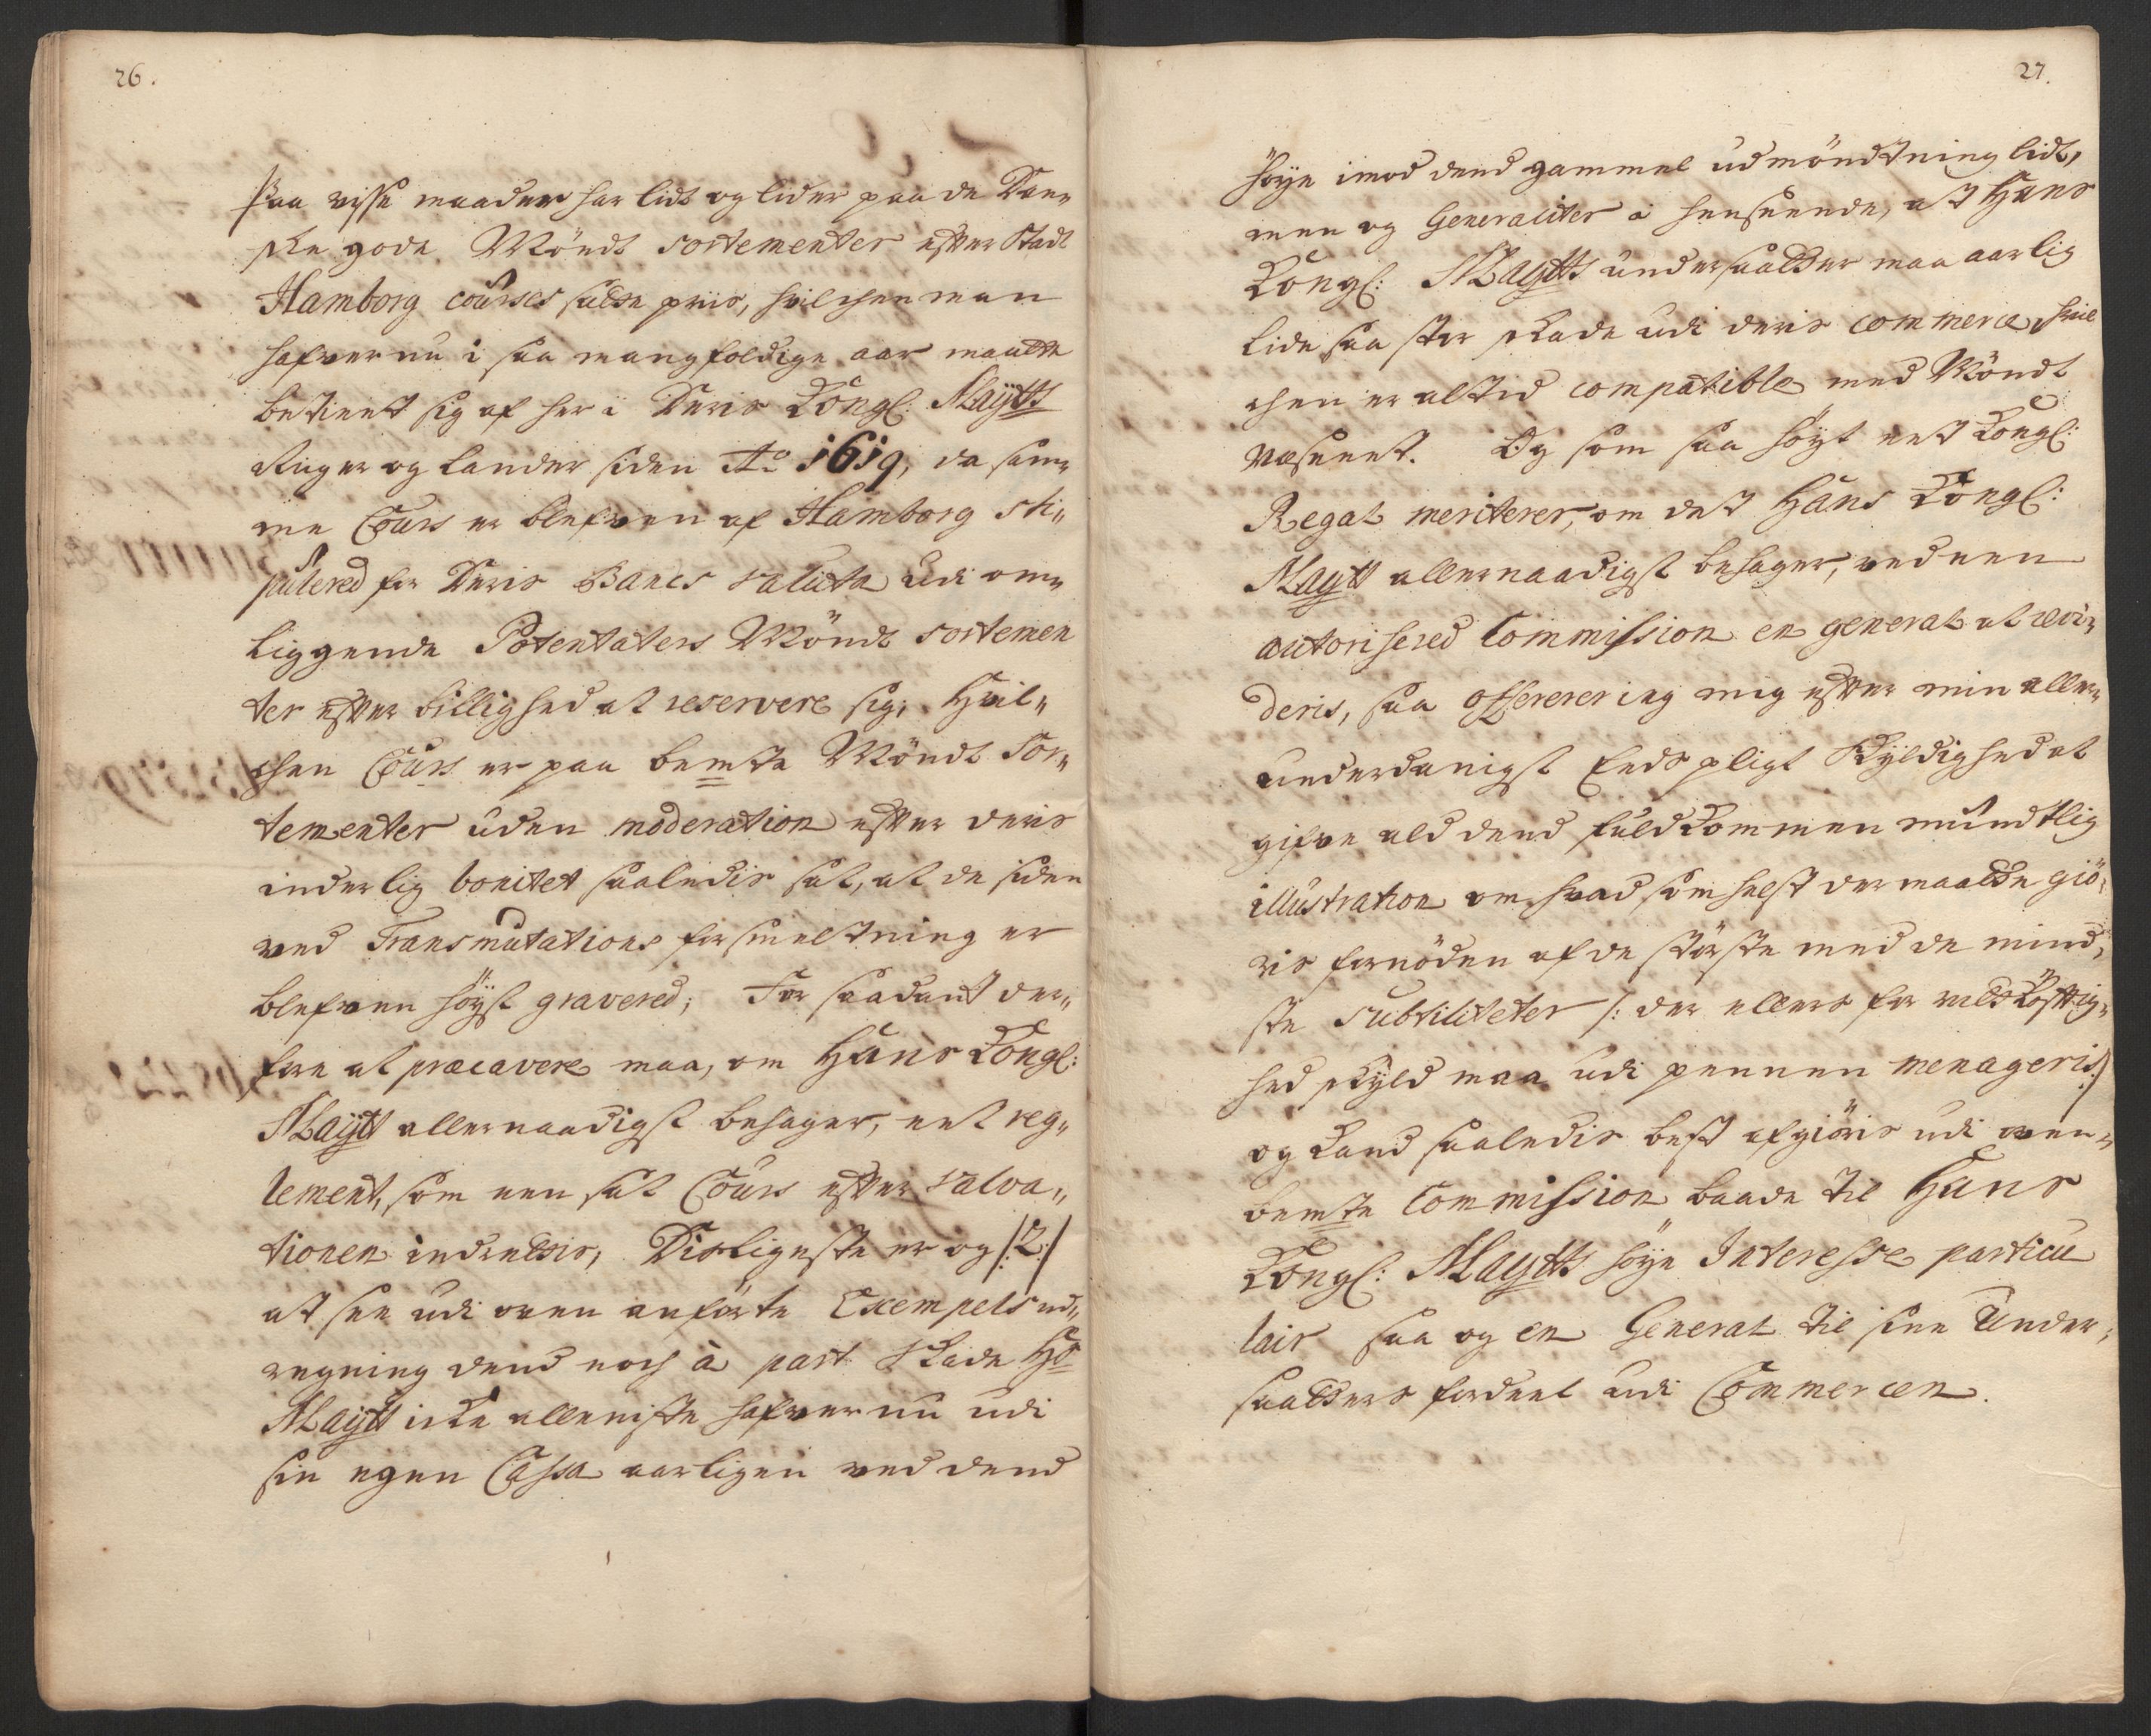 26.
Paa visse maader har lidt og lider paa de Dan„
ske gode Möndt sortementer efter Stadt
Hamborg courses satte priis, hvilchen man
hafver nu i saa mangfoldige aar maatte
betient sig af her i Deris Kongl: Maÿtts
Riger og lander siden Ao 1619, da sam„
me Cours er blefven af Hamborg sti„
pulered for Deris Banco valuta udi om„
liggende Potentaters Möndt sortemen
ter efter billighed at reservere sig, Hvil„
chen Cours er paa bemte Möndt Sor„
tementer uden moderation efter deris
inderlig bonitet saaledis sat, at de siden
ved Transmutations forsmeltning er
blefven höyst gravered; For saadant der„
fore at præcavere maa, om Hans Kongl:
Maÿtt allernaadigst behager, eet reg„
lement, som een sat Cours efter valva„
tionen indrettis, Disligeste er og /:2:/
at see udi oven anförte Exempels ud„
regning dend noch à part skade Hs
Maÿtt icke alleniste hafver nu udi
sin egen Cassa aarligen ved dend
27.
höye imod dend gammel udmöndtning lidt,
men og Generaliter i henseende, at Hans
Kongl: Maÿtts undersaatter maa aarlig
lide saa stor skade udi deris commerce, hvil
chen er altid compatible med Möndt
væsenet. Og som saa höyt eet Kongl:
Regal meriterer, om det Hans Kongl:
Maÿtt allernaadigst behager, ved een
autorisered Commission en general at revi„
deris, saa offererer ieg mig efter min aller„
underdanigst Eeds pligt skyldighed at
gifve ald dend fuldkommen mundtlig
illustration om hvad som helst der maatte giö„
ris fornöden af de störste med de mind„
ste subtiliteter /: der ellers for vitlöfftig„
hed skyld maa udi pennen menageris:/
og kand saaledis best afgiöris udi oven„
bemte Commission baade til Hans
Kongl: Maÿtts höye Interesse particu
lair saa og en General til sine Under„
saatters fordeel udi Commercen.